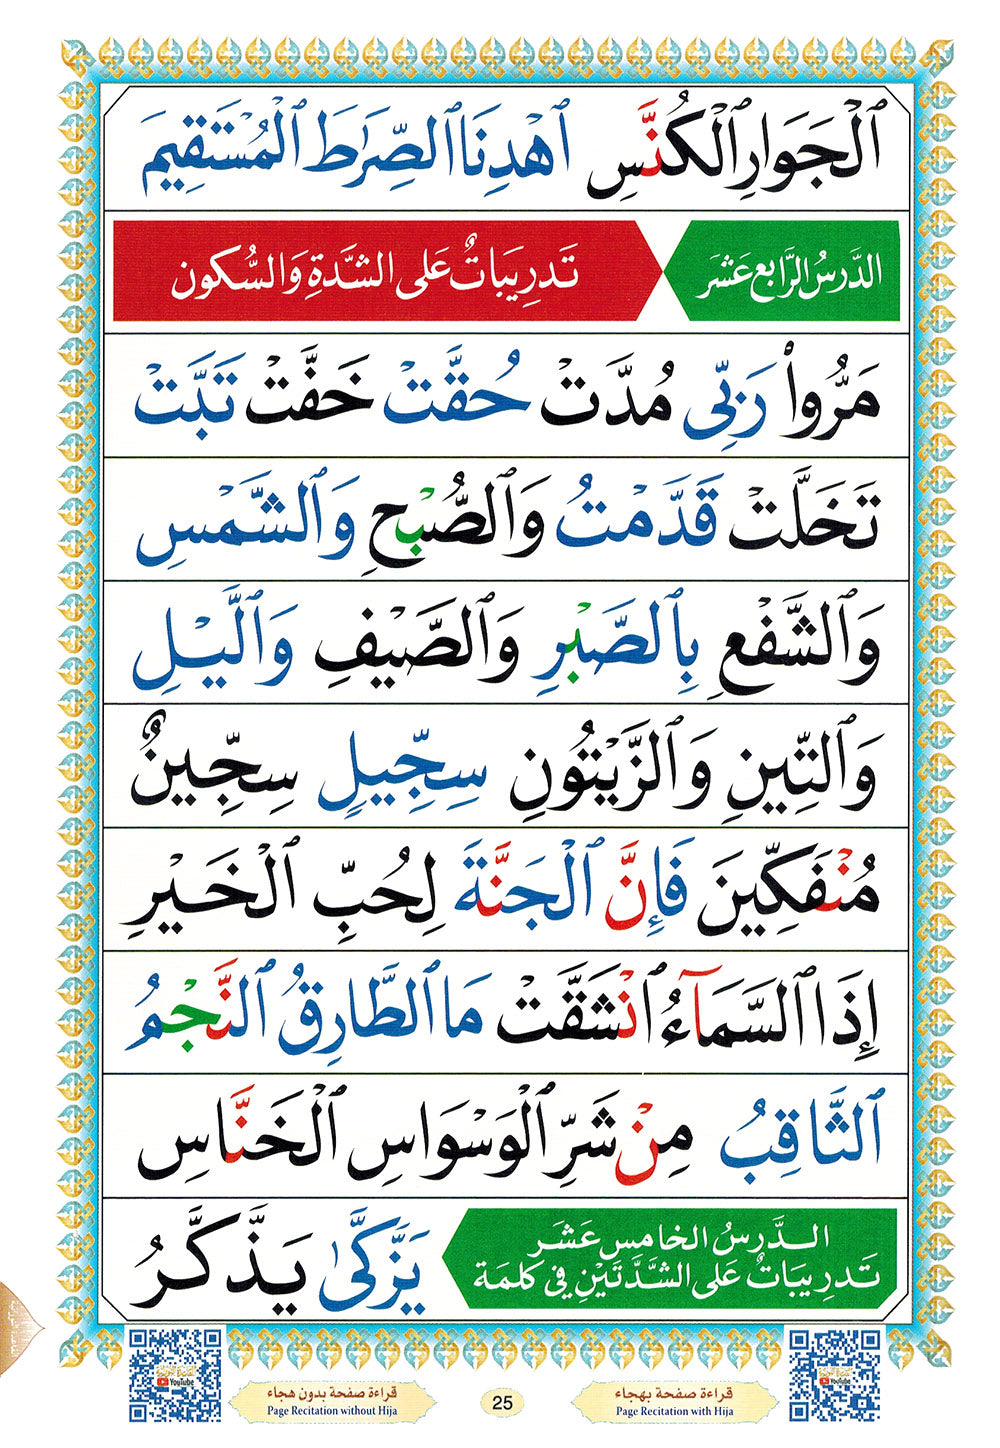 ٱلْجَوَارِ ٱلْكُنَّسِ ٱهْدِنَا ٱلصِّرَٰطَ ٱلْمُسْتَقِيمَ
الدَّرسُ الرَّابع عَشَر تَدرِيبَاتٌ عَلى الشدَّةِ وَالسُّكون
مَرُّوا۟ رَبِّى مُدَّتْ حُقَّتْ خَفَّتْ تَبَّتْ
تَخَلَّتْ قَدَّمْتُ وَٱلصُّبْحِ وَٱلشَّمْسِ
وَٱلشَّفْعِ بِٱلصَّبْرِ وَٱلصَّيْفِ وَٱلَّيْلِ
وَٱلتِّينِ وَٱلزَّيْتُونِ سِجِّيلٍ سِجِّينٌ
مُنْفَكِّينَ فَإِنَّ ٱلْجَنَّةَ لِحُبِّ ٱلْخَيْرِ
إِذَا ٱلسَّمَآءُ ٱنْشَقَّتْ مَا ٱلطَّارِقُ ٱلنَّجْمُ
ٱلثَّاقِبُ مِنْ شَرِّ ٱلْوَسْوَاسِ ٱلْخَنَّاسِ
الـدَّرسُ الخامس عَشَـر
تَـدرِيبَاتٌ عَلى الشَّدَّتَيْنِ فِي كلمَة
يَزَّكَّىٰ يَذَّكَّرُ
YouTube
YouTube
قراءة صفحة بهجاء
Page Recitation with Hija
25
قراءة صفحة بدون هجاء
Page Recitation without Hija